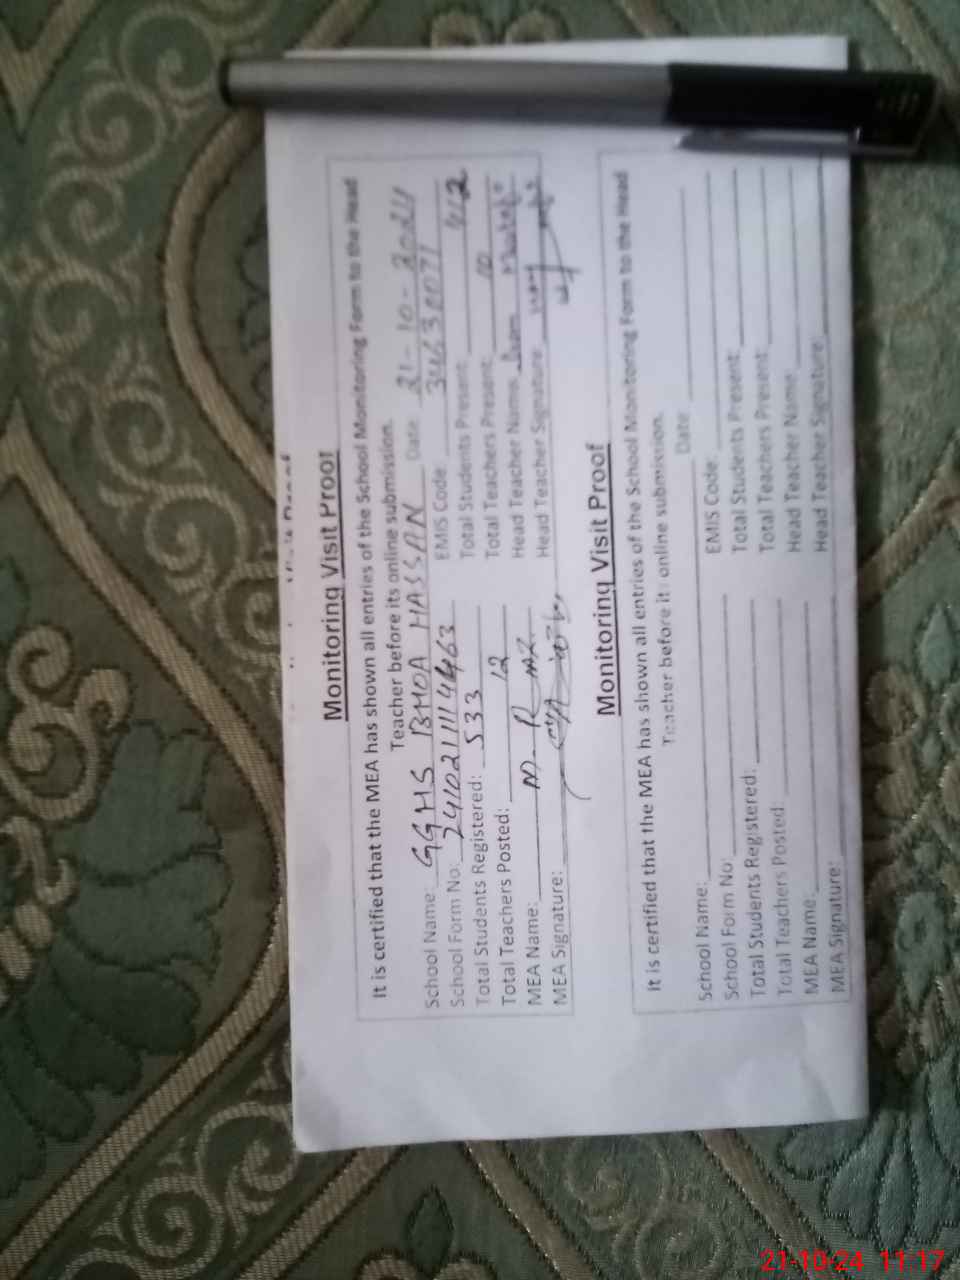 Monitoring Visit Proof
It is certified that the MEA has shown all entries of the School Monitoring Form to the Head
Teacher before its online submission.
School Name: GGHS BHOA HASSAN Date 21-10-2024
School Form No: 2410211114463 EMIS Code
Total Students Registered: 533 Total Students Present: 412
Total Teachers Posted: 12 Total Teachers Present: 10
MEA Name: M. Head Teacher Name
MEA Signature: Head Teacher Signature:
Monitoring Visit Proof
It is certified that the MEA has shown all entries of the School Monitoring Form to the Head
Teacher before its online submission.
School Name: Date
School Form No: EMIS Code:
Total Students Registered: Total Students Present:
Total Teachers Posted: Total Teachers Present:
MEA Name: Head Teacher Name
MEA Signature: Head Teacher Signature:
21-10-24 11:17